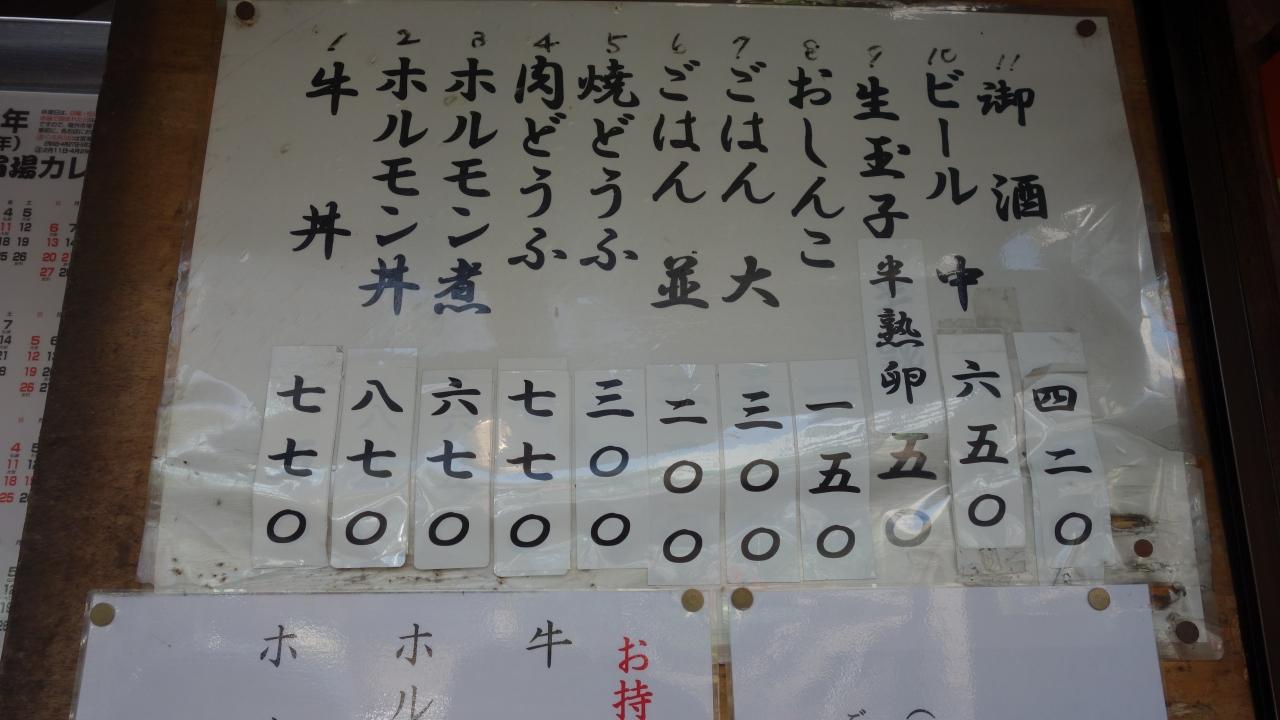 11 御酒 四二〇
10 ビール 中 六五〇
9 生玉子 半熟卵 五〇
8 おしんこ 一五〇
7 ごはん 大 三〇〇
6 ごはん 並 二〇〇
5 焼どうふ 三〇〇
4 肉どうふ 七七〇
3 ホルモン煮 六七〇
2 ホルモン丼 八七〇
1 牛丼 七七〇
お持
牛
ホル
ホ
年
年)
場カレ